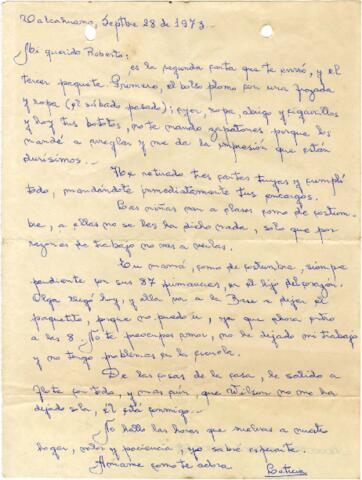 Talcahuano, Septbre 28 de 1973.-
Mi querido Roberto:
es la segunda carta que te envío, y el
tercer paquete. Primero, el bolso plomo con una frazada
y ropa (el sábado pasado); ayer, ropa, abrigo y cigarrillos
y hoy tus bototos, no te mando zapatones porque los
mandé a arreglar y me da la impresión que están
durísimos...
He retirado tres cartas tuyas y cumplí
todo, mandándote inmediatamente tus encargos.
Las niñas van a clases como de costum
bre, a ellas no se les ha dicho nada, sólo que por
razones de trabajo no vas a verlas.
Tu mamá, como de costumbre, siempre
pendiente por sus 87 primaveras, es el hijo del corazón.
Olga llegó hoy, y ella va a la Base a dejar el
paquetito, porque no puedo ir, ya que ahora entro
a las 8. No te preocupes amor, no he dejado mi trabajo
y no tengo problemas en la escuela.
De las cosas de la casa, he salido a
flote con todo, y más aún, que Wilson no me ha
dejado sola, él está conmigo...
No hallo las horas que vuelvas a nuestro
hogar, valor y paciencia, yo sabré esperarte.
Amame como te adora.
Leticia